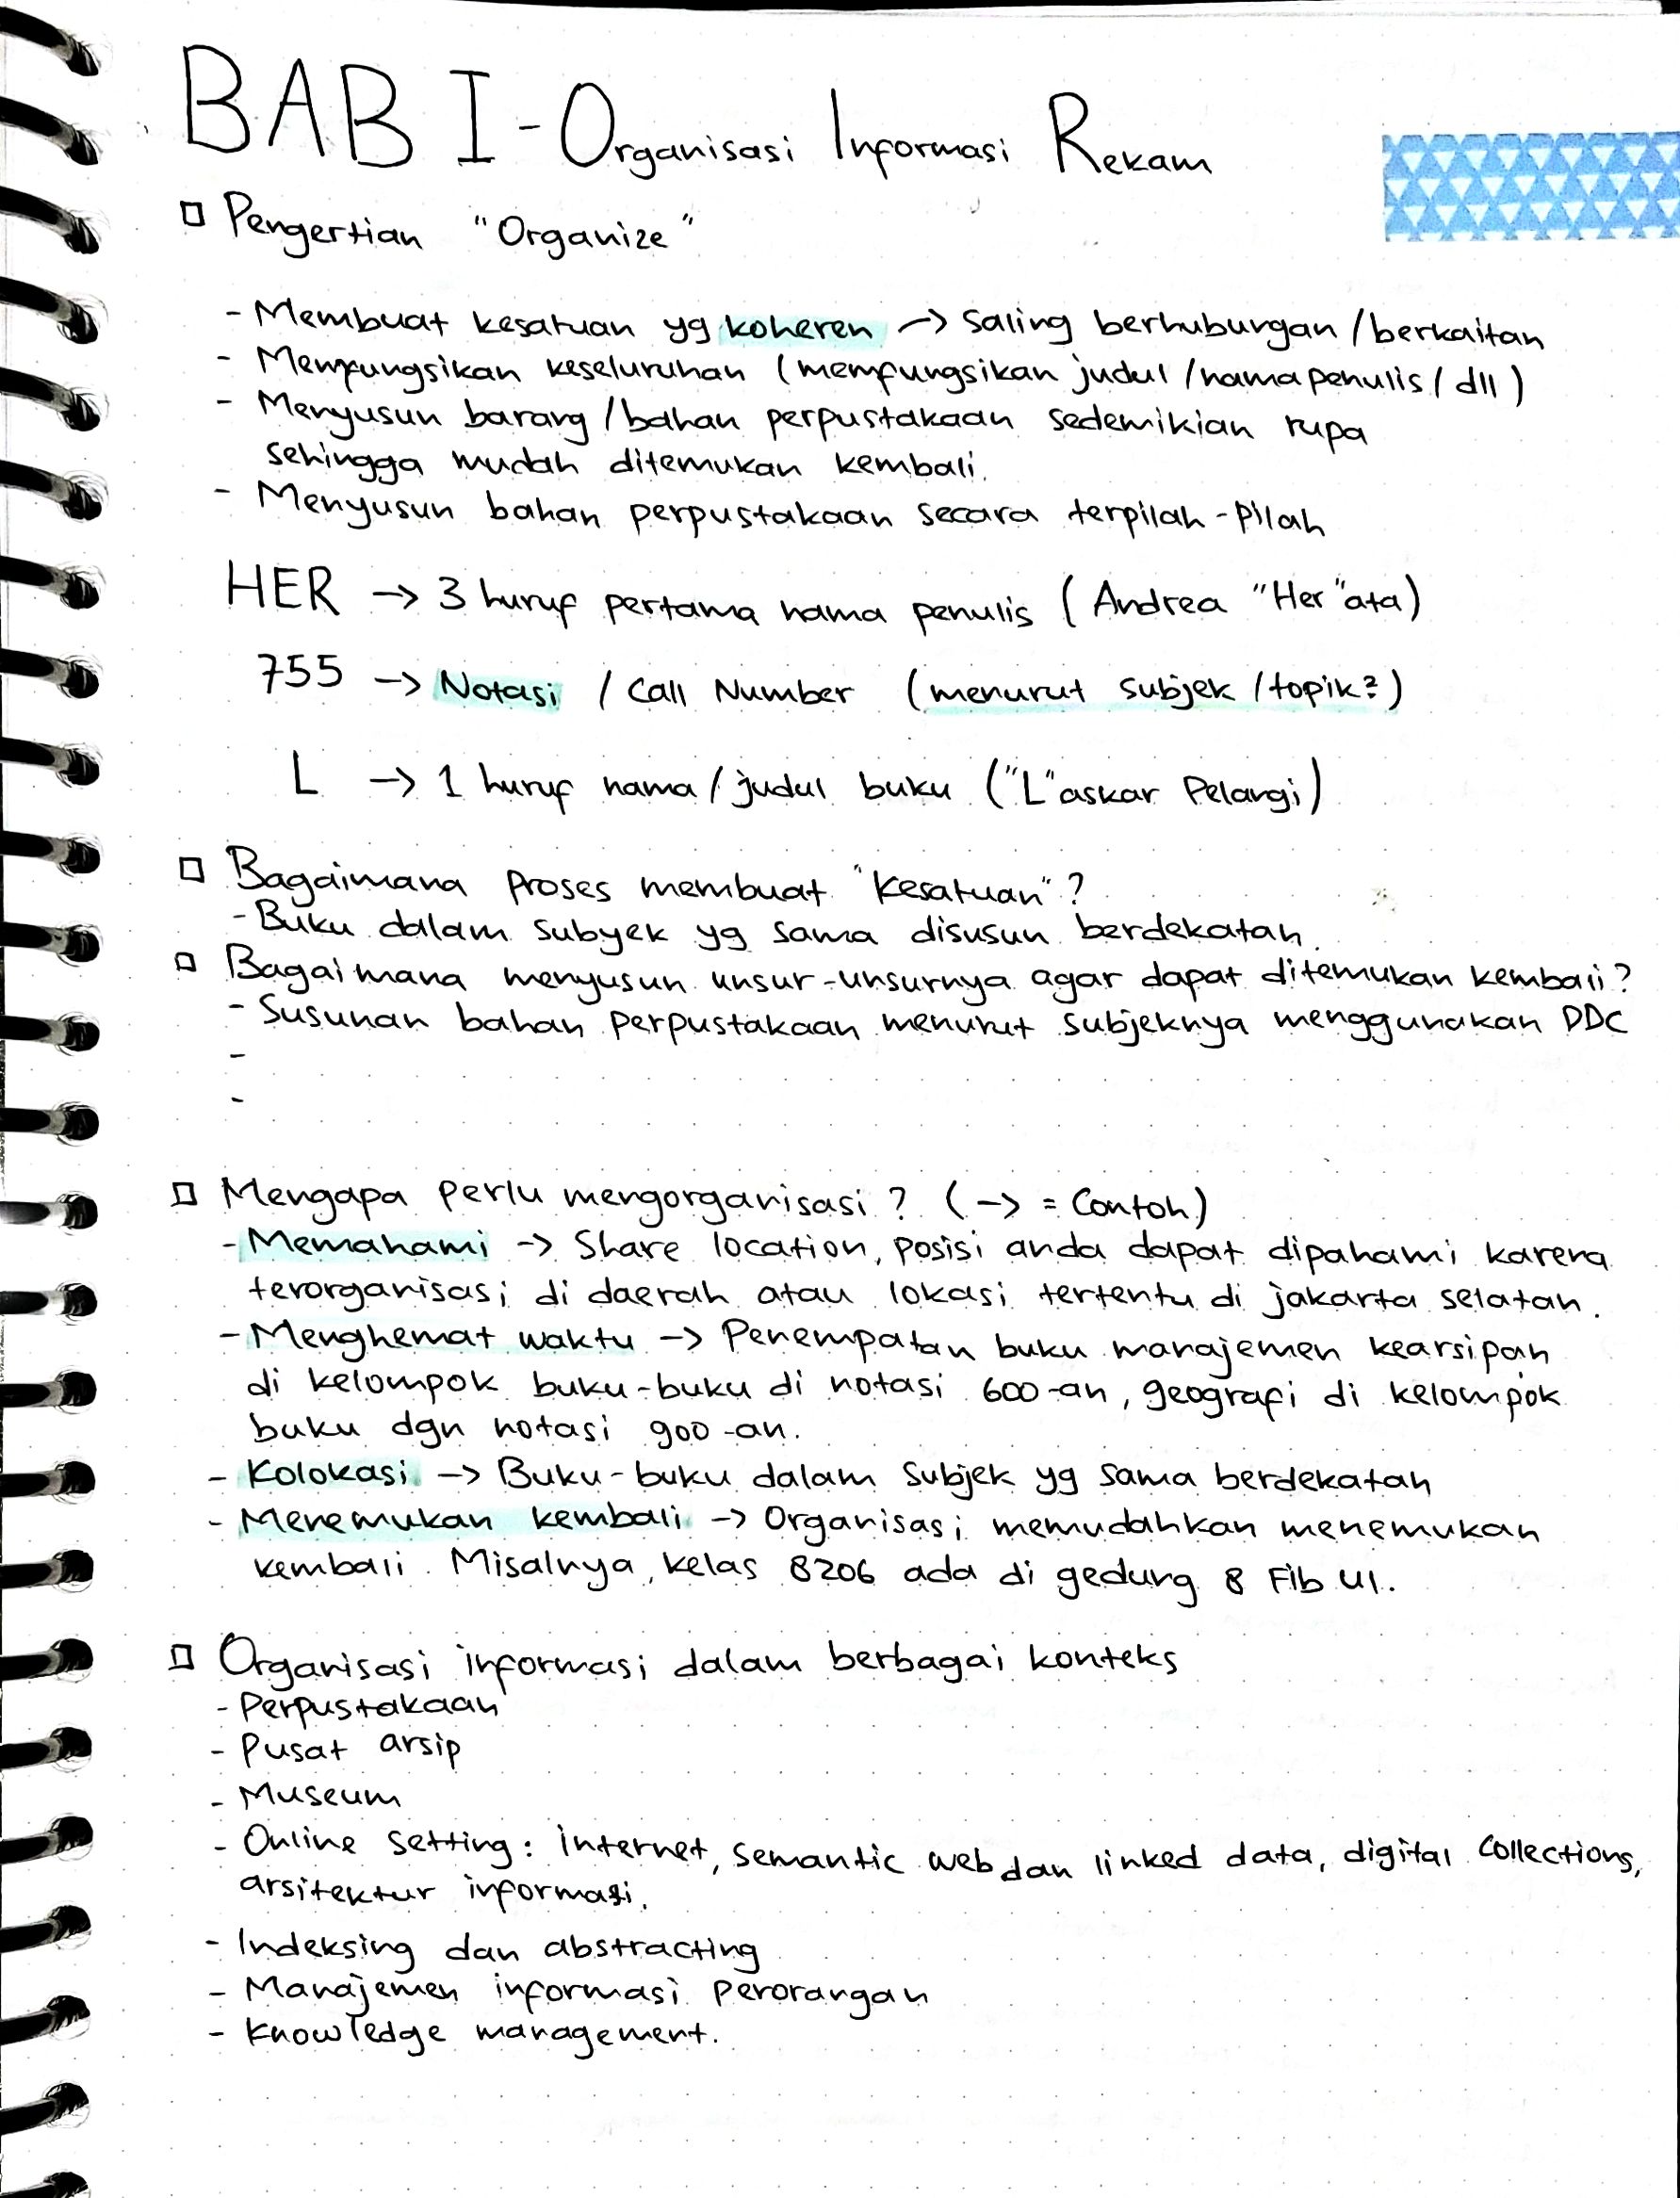 BAB I - Organisasi Informasi Rekam
□ Pengertian "Organize"
- Membuat kesatuan yg koheren → saling berhubungan / berkaitan
- Memfungsikan keseluruhan (memfungsikan judul / nama penulis / dll)
- Menyusun barang / bahan perpustakaan sedemikian rupa
sehingga mudah ditemukan kembali.
- Menyusun bahan perpustakaan secara terpilah-pilah
HER → 3 huruf pertama nama penulis (Andrea "Her"ata)
755 → Notasi / Call Number (menurut subjek / topik?)
L → 1 huruf nama / judul buku ("L"askar Pelangi)
□ Bagaimana proses membuat "kesatuan"?
- Buku dalam subyek yg sama disusun berdekatan.
□ Bagaimana menyusun unsur-unsurnya agar dapat ditemukan kembali?
- Susunan bahan perpustakaan menurut subjeknya menggunakan DDC
-
-
□ Mengapa perlu mengorganisasi? (→ = Contoh)
- Memahami → Share location, posisi anda dapat dipahami karena
terorganisasi di daerah atau lokasi tertentu di jakarta selatan.
- Menghemat waktu → Penempatan buku manajemen kearsipan
di kelompok buku-buku di notasi 600-an, geografi di kelompok
buku dgn notasi 900-an.
- Kolokasi → Buku-buku dalam subjek yg sama berdekatan
- Menemukan kembali → Organisasi memudahkan menemukan
kembali. Misalnya, kelas 8206 ada di gedung 8 Fib UI.
□ Organisasi informasi dalam berbagai konteks
- Perpustakaan
- Pusat arsip
- Museum
- Online setting: internet, semantic web dan linked data, digital collections,
arsitektur informasi.
- Indeksing dan abstracting
- Manajemen informasi perorangan
- Knowledge management.